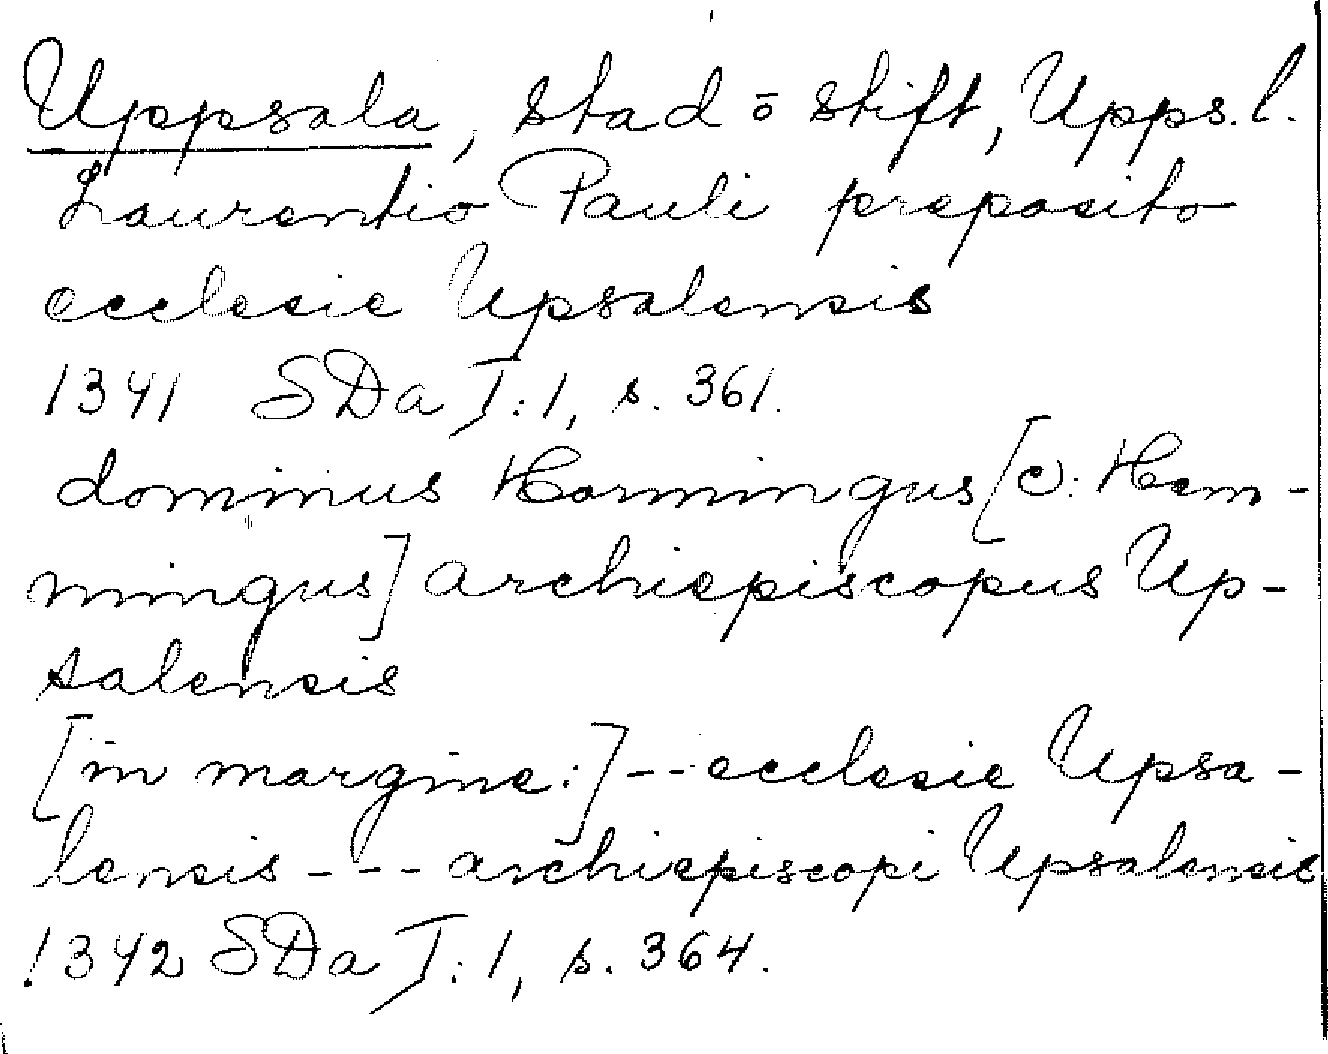 Uppsala, stad o stift, Upps.l.
Laurentio Pauli preposito
ecclesie Upsalensis
1341 SDa I:1, s. 361.
dominus Hormingus [ɔ: Hem-
mingus] archiepiscopus Up-
salensis
[in margine:] -- ecclesie Upsa-
lensis --- archiepiscopi Upsalensis
1342 SDa I:1, s. 364.